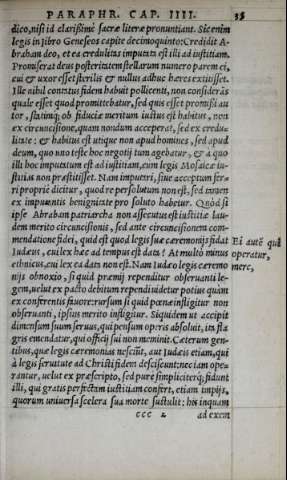 PARAPHR. CAP. IIII. 35
dico, nisi id clarissimè sacræ literæ pronuntiant. Sic enim
legis in libro Geneseos capite decimoquinto: Credidit A-
braham deo, et ea credulitas imputata est illi ad iustitiam.
Promiserat deus posteritatem stellarum numero parem ei,
cui & uxor esset sterilis & nullus adhuc hæres extitisset.
Ille nihil cunctatus fidem habuit pollicenti, non consideräs
quale esset quod promittebatur, sed quis esset promissi au
tor, statimq; ob fiduciæ meritum iustus est habitus, non
ex circuncisione, quam nondum acceperat, sed ex credu-
litate: & habitus est utique non apud homines, sed apud
deum, quo uno teste hoc negotij tum agebatur, & à quo
illi hoc imputatum est ad iustitiam, cum legis Mosaicæ iu-
stitias non præstitisset. Nam imputari, siue acceptum fer-
ri proprie dicitur, quod re persolutum non est, sed tamen
ex imputantis benignitate pro soluto habetur. Quòd si
ipse Abraham patriarcha non assecutus est iustitiæ lau-
dem merito circuncisionis, sed ante circuncisionem com-
mendatione fidei, quid est quod legis suæ cæremonijs fidat
Iudæus, cui lex hæc ad tempus est data? At multò minus
ethnicus, cui lex ea data non est. Nam Iudæo legis cæremo
nijs obnoxio, si quid præmij rependitur obseruanti le-
gem, uelut ex pacto debitum rependi uidetur potius quàm
ex conferentis fauore: rursum si quid pœnæ infligitur non
obseruanti, ipsius merito infligitur. Siquidem ut accipit
dimensum suum seruus, qui pensum operis absoluit, ita fla
gris emendatur, qui officij sui non meminit. Cæterum gen-
tibus, quæ legis cæremonias nesciüt, aut Iudæis etiam, qui
à legis seruitute ad Christi fidem desciscunt: nec iam ope-
rantur, uelut ex præscripto, sed purè simpliciterq; fidunt
illi, qui gratis perfectam iustitiam confert, etiam impijs,
quorum uniuersa scelera sua morte sustulit: his inquam
ccc 2 ad exem
Ei autē qui
operatur,
merc,